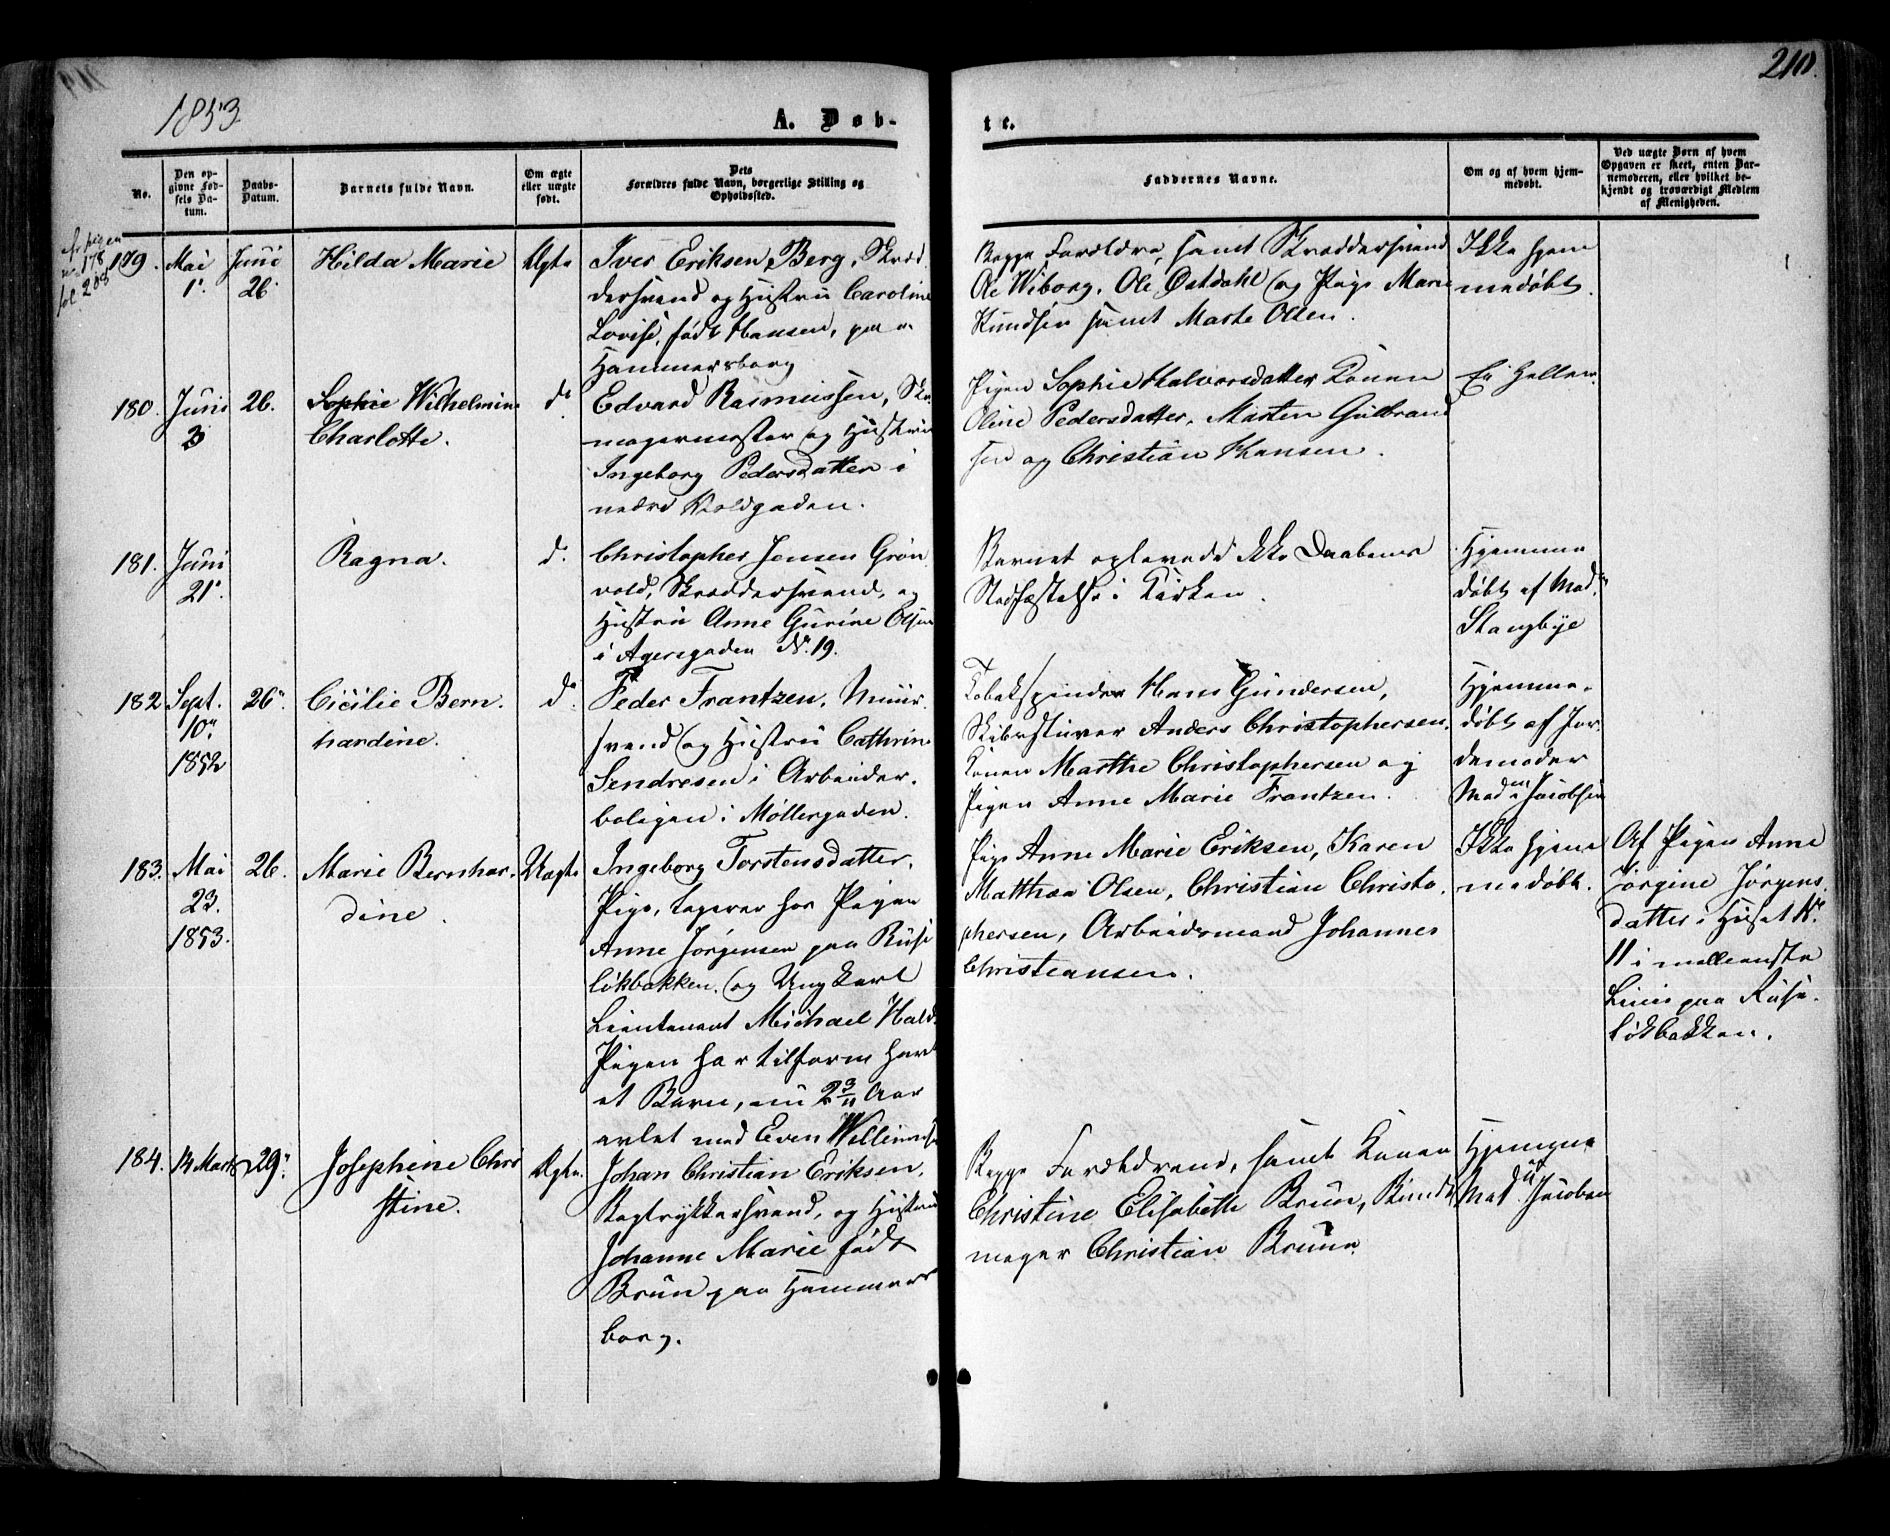 210.
1853
A. Døb-
te.
No.
Den op-
givne Fød-
sels Da-
tum.
Daabs-
Datum.
Barnets fulde Navn.
Om ægte
eller uægte
født.
Dets
Forældres fulde Navn, borgerlige Stilling og
Opholdssted.
Faddernes Navne.
Om og af hvem hjem-
medøbt.
Ved uægte Børn af hvem
Opgaven er skeet, enten Bar-
nemoderen, eller hvilket be-
kjendt og troværdigt Medlem
af Menigheden.
pigen
nr. 178
fol. 208
179.
Mai
1.
Juni
26.
Hilda Marie
Ægte
Iver Eriksen Berg, Skræd
dersvend og Hustru Caroline
Lovise, født Hansen, paa
Hammersborg
Begge Forældre, samt Skræddersvend
Ole Wiborg, Ole Østdahl og Pige Marie
Knudsen samt Marte Olsen.
Ikke hjem
medøbt.
180.
Juni
3
26.
Sophie Wilhelmine
Charlotte.
do
Edvard Rasmussen, Sko
magermester og Hustru
Ingeborg Pedersdatter i
nedre Voldgaden.
Pigen Sophie Halvorsdatter Konen
Oline Pedersdatter, Marten Gulbrand
sen og Christian Hansen.
Ei heller.
181.
Juni
21.
Ragna.
d.
Christopher Jensen Grøn
vold, Skræddersvend, og
Hustru Anne Gurine Olsen
i Agersgaden No. 19.
Barnet oplevede ikke Daabens
Stadfæstelse i Kirken.
Hjemme
døbt af Mad.
Stangbye
182
Sept.
10.
1852
26.
Cicilie Bern
hardine.
d.
Peder Frantzen, Muur
svend og Hustru Cathrine
Sendresen i Arbeider
boligen i Møllergaden.
Tobakspinder Hans Gundersen,
Skibsstuver Anders Christophersen.
Konen Marthe Christophersen og
Pigen Anne Marie Frantzen.
Hjemme
døbt af Jor
demoder
Mad. Jacobsen
183.
Mai
23.
1853.
26.
Marie Bernhar
dine.
Uægte
Ingeborg Torstensdatter,
Pige, logerer hos Pigen
Anne Jørgensen paa Ruse
løkbakken, og Ungkarl
Lieutenant Michael Hald.
Pigen har tilforn havt
et Barn, nu 2 3/11 Aar
avlet med Even
Pige Anne Marie Eriksen, Karen
Matthea Olsen, Christian Christo
phersen, Arbeidsmand Johannes
Christiansen.
Ikke hjem
medøbt.
Af Pigen Anne
Jørgine Jørgens
datter i Huset No
11 i mellemste
Linie paa Ruse
løkbakken.
184.
14 Marts
29.
Josephine Chri
stine.
Ægte.
Johan Christian Eriksen,
Bogtrykkersvend, og Hustru
Johanne Marie født
Bruun paa Hammers
borg.
Begge Forældrene, samt Konen
Christine Elisabeth Bruun, Bundt
mager Christian Bruun
Hjemme
Mad. Jacobsen